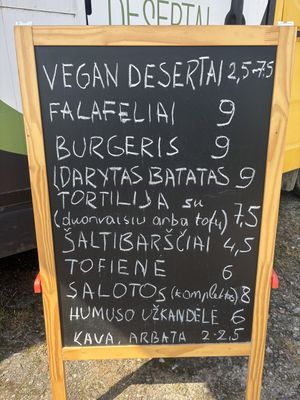 DESERTAI
VEGAN DESERTAI 2,5-7,5
FALAFELIAI 9
BURGERIS 9
ĮDARYTAS BATATAS 9
TORTILIJA su
(duonvaisiu arba tofu) 7,5
ŠALTIBARŠČIAI 4,5
TOFIENĖ 6
SALOTOS (komplektas) 8
HUMUSO UŽKANDĖLĖ 6
KAVA, ARBATA 2-2.5